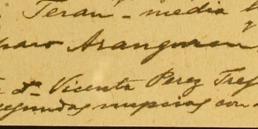 Teran - media
Aranguren y
Dn Vicente Perez
segundas nupcias con